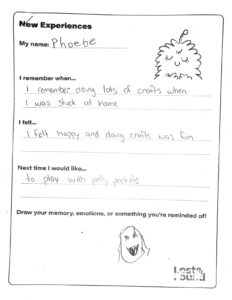 New Experiences
My name: Phoebe
I remember when...
I remember doing lots of crafts when
I was stuck at home
I felt...
I felt happy and doing crafts was fun
Next time I would like...
to play with polly pockets
Draw your memory, emotions, or something you're reminded of!
Lost &
Found